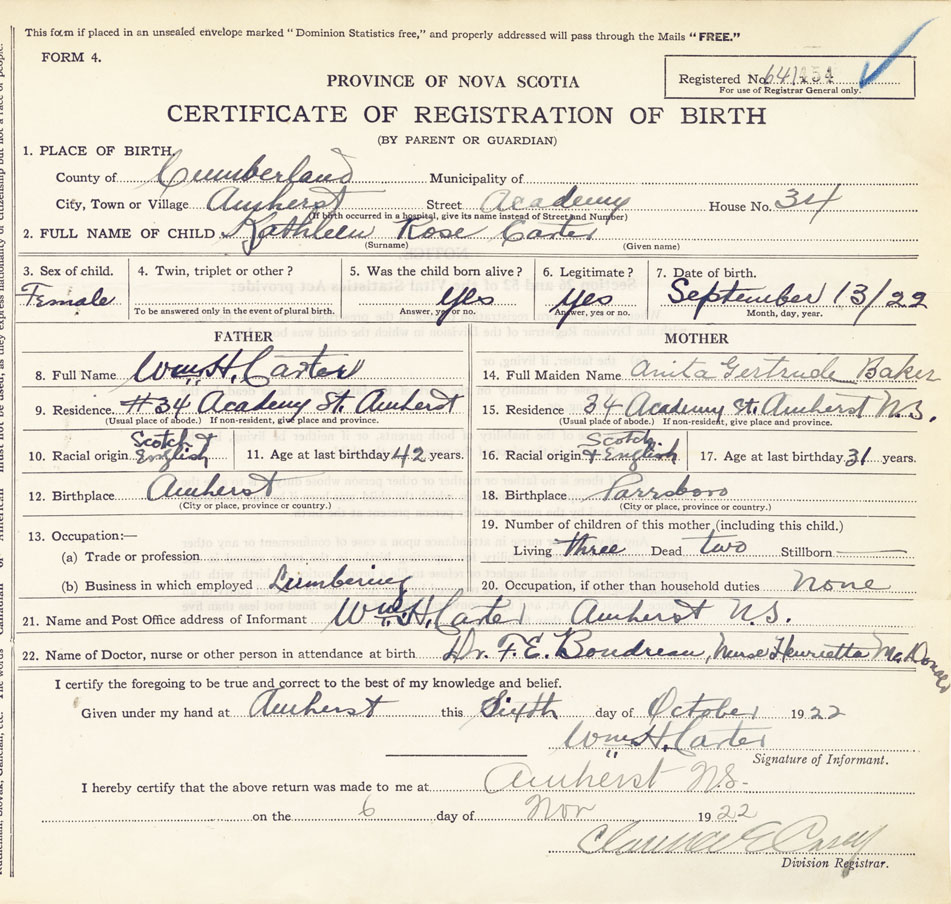 This form if placed in an unsealed envelope marked "Dominion Statistics free," and properly addressed will pass through the Mails "FREE."
FORM 4.
Registered No.
For use of Registrar General only.
PROVINCE OF NOVA SCOTIA
CERTIFICATE OF REGISTRATION OF BIRTH
(BY PARENT OR GUARDIAN)
1. PLACE OF BIRTH.
County of Cumberland Municipality of
City, Town or Village Amherst Street Academy House No. 34
(If birth occurred in a hospital, give its name instead of Street and Number)
2. FULL NAME OF CHILD Kathleen Rose Carter
(Surname) (Given name)
3. Sex of child. 4. Twin, triplet or other? 5. Was the child born alive? 6. Legitimate? 7. Date of birth.
Female Yes Yes September 13/22
To be answered only in the event of plural birth. Answer, yes or no. Answer, yes or no. Month, day, year.
FATHER MOTHER
8. Full Name Wm. H. Carter 14. Full Maiden Name Anita Gertrude Baker
9. Residence #34 Academy St. Amherst 15. Residence 34 Academy St. Amherst N.S.
(Usual place of abode.) If non-resident, give place and province. (Usual place of abode.) If non-resident, give place and province.
10. Racial origin Scotch & English 11. Age at last birthday 42 years. 16. Racial origin Scotch & English 17. Age at last birthday 31 years.
12. Birthplace Amherst 18. Birthplace Parrsboro
(City or place, province or country.) (City or place, province or country.)
13. Occupation:— 19. Number of children of this mother (including this child.)
(a) Trade or profession Living three Dead two Stillborn —
(b) Business in which employed Lumbering 20. Occupation, if other than household duties none
21. Name and Post Office address of Informant Wm. H. Carter Amherst N.S.
22. Name of Doctor, nurse or other person in attendance at birth Dr. F. E. Boudreau, Nurse Henrietta McDonald
I certify the foregoing to be true and correct to the best of my knowledge and belief.
Given under my hand at Amherst this Sixth day of October 1922
Wm. H. Carter
Signature of Informant.
I hereby certify that the above return was made to me at Amherst N.S.
on the 6 day of Nov 1922
Division Registrar.